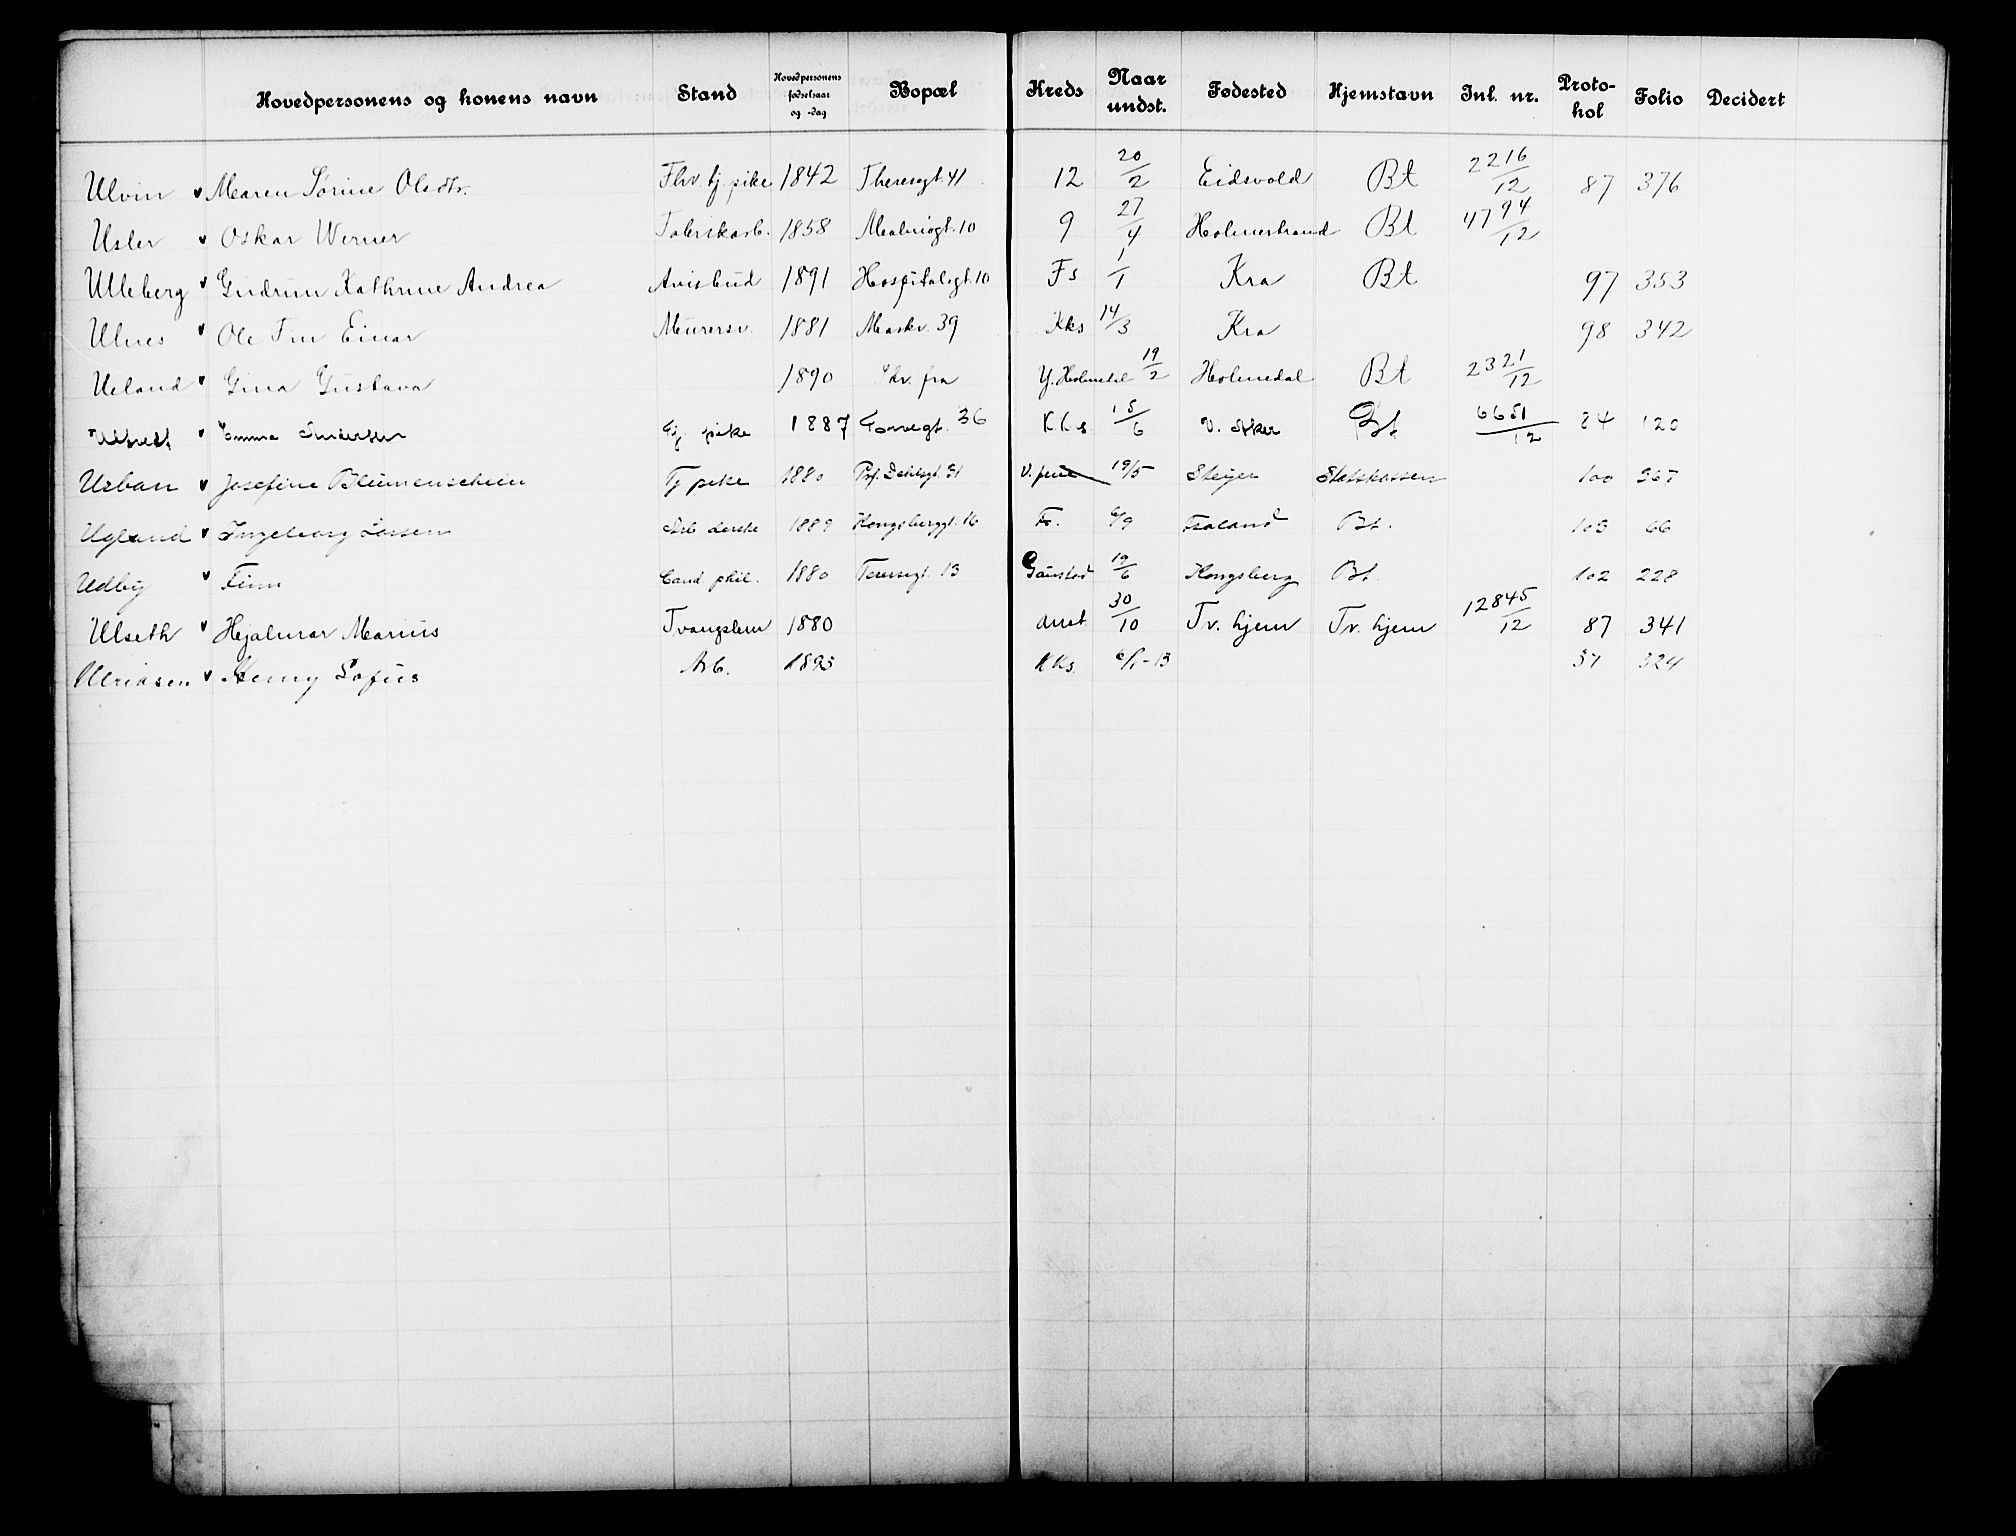 Hovedpersonens og konens navn Stand Hovedpersonens fødselsaar og -dag Bopæl Kreds Naar undst. Fødested Hjemstavn Inl. nr. Protokol Folio Decidert
Ulvin Maren Sørine Olsdtr. Fhv. tj. pike 1842 Theresgt. 41 12 20/2 Eidsvold Bt 2216/12 87 376
Usler Oskar Werner Fabrikarb. 1858 Malmøgt. 10 9 27/4 Holmestrand Bt 4794/12
Ulleberg Gudrun Kathrine Andrea Avisbud 1891 Hospitalsgt. 10 Fs 1/1 Kra Bt 97 353
Ulnes Ole Finn Einar Murersv. 1881 Maskv. 39 Kks 14/3 Kra 98 342
Ueland Gina Gustava 1890 Skv. fra Y. Holmedal 19/2 Holmedal Bt 2321/12
Emma Andersen Tj pike 1887 Torvegt. 36 Kks 15/6 V. Aker Bt 6651/12 84 120
Urban Josefine Blumenschein Tj pike 1880 Prf. Dahlsgt. 31 19/5 Steyer Statskassen 100 367
Ugland Ingeborg Larsen Arb. 1889 Kongsberggt. 16 Fs. 6/9 Bt. 103 66
Udby Finn Cand phil. 1880 Teresegt. 13 Gaustad 19/6 Kongsberg Bt. 102 228
Ulseth Hjalmar Marius Tvangslem 1880 Anst. 30/10 Tv. hjem Tv. hjem 12845/12 87 341
Ulriksen Henry Sofus Arb. 1893 KKs. 6/1-13 57 324